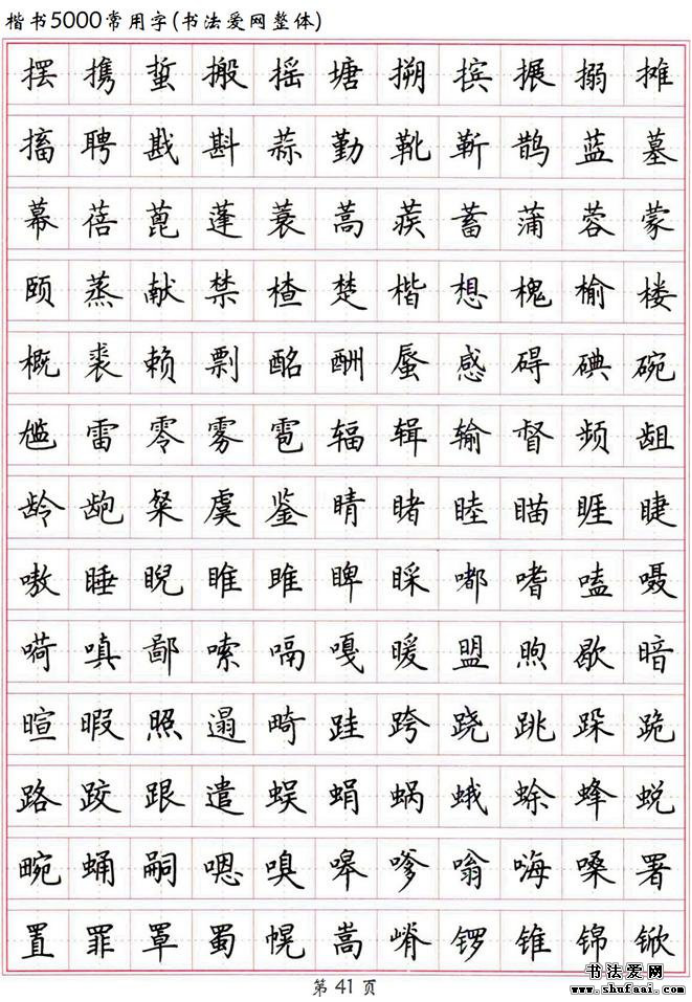 楷书5000常用字(书法爱网整体)
摆携蜇搬摇塘搠摈搌搦摊
搐聘戡斟蒜勤靴靳鹊蓝墓
幕蓓蓖蓬蓑蒿蒺蓄蒲蓉蒙
颐蒸献禁楂楚楷想槐榆楼
概裘赖剽酩酬蜃感碍碘碗
尴雷零雾雹辐辑输督频龃
龄龅粲虞鉴睛睹睦瞄睚睫
嗷睡睨睢雎睥睬嘟嗜嗑嗫
嗬嗔鄙嗦嗝嘎暖盟煦歇暗
暄暇照遢畸跬跨跷跳跺跪
路跤跟遣蜈蜗蜗蛾蜍蜂蜕
畹蛹嗣嗯嗅嗥嗲嗡嗨嗓署
置罪罩蜀幌嵩嵴锣锥锦锨
第 41 页
书法爱网
www.shufaai.com